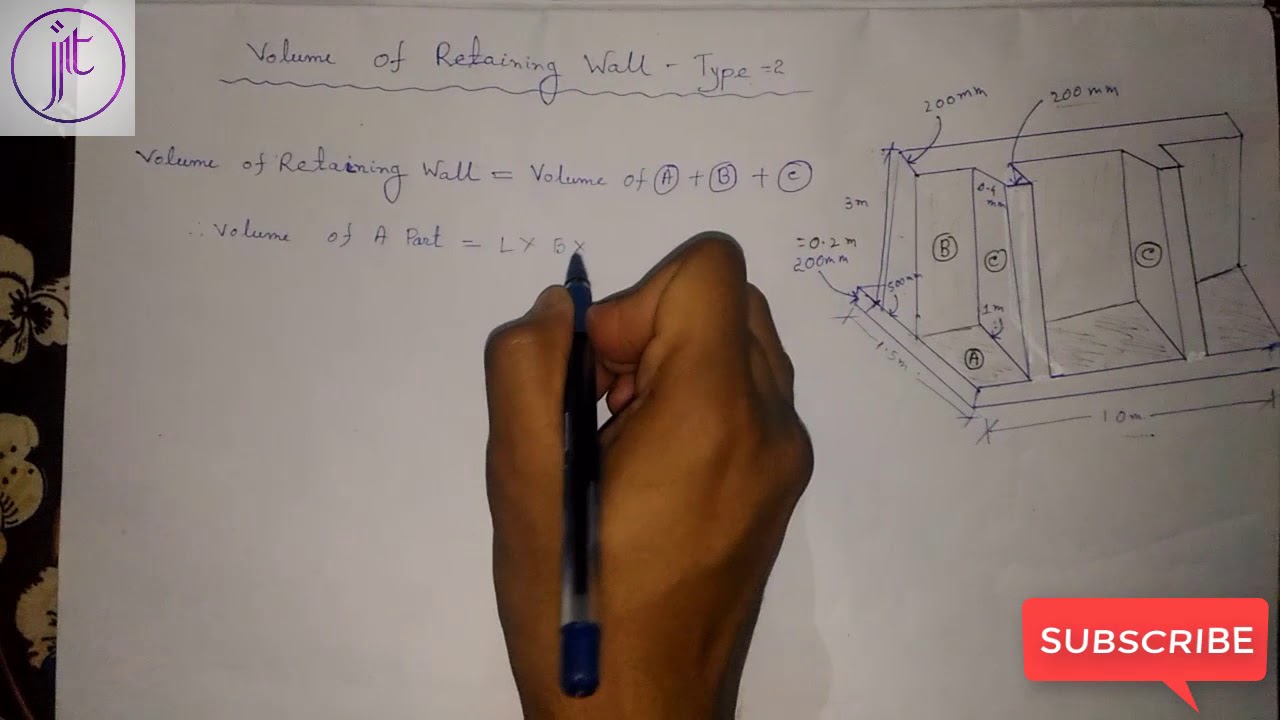 jit
Volume of Retaining Wall - Type = 2
Volume of Retaining Wall = Volume of A + B + C
∴ Volume of A Part = L × B ×
200mm
200mm
3m
0.4
mm
= 0.2m
200mm
500mm
B
C
C
1m
A
1.5m
10m
SUBSCRIBE